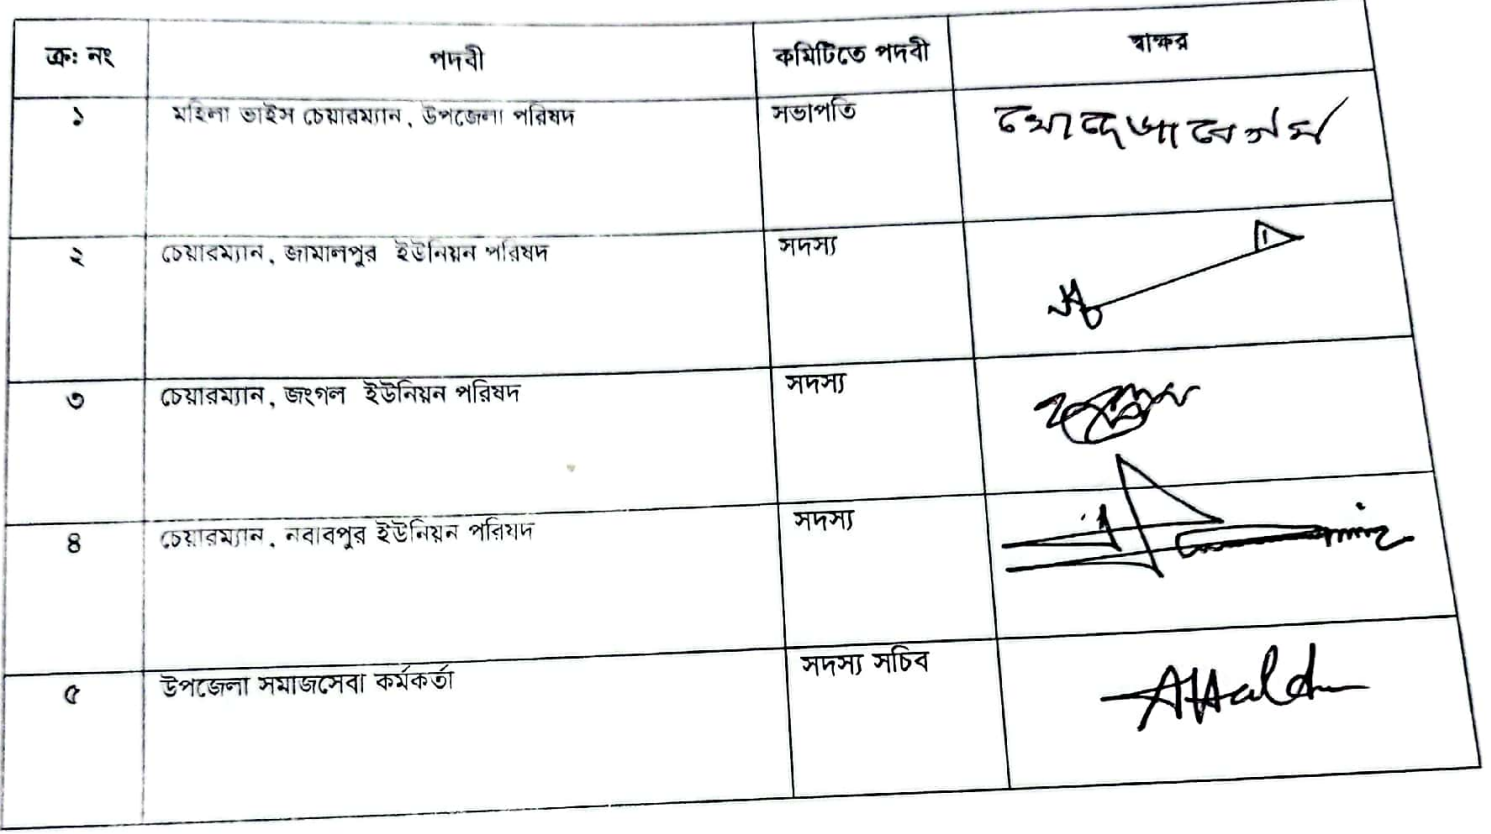 ক্র: নং পদবী কমিটিতে পদবী স্বাক্ষর
১ মহিলা ভাইস চেয়ারম্যান, উপজেলা পরিষদ সভাপতি খোদেজা বেগম
২ চেয়ারম্যান, জামালপুর ইউনিয়ন পরিষদ সদস্য
৩ চেয়ারম্যান, জংগল ইউনিয়ন পরিষদ সদস্য
৪ চেয়ারম্যান, নবাবপুর ইউনিয়ন পরিষদ সদস্য
৫ উপজেলা সমাজসেবা কর্মকর্তা সদস্য সচিব